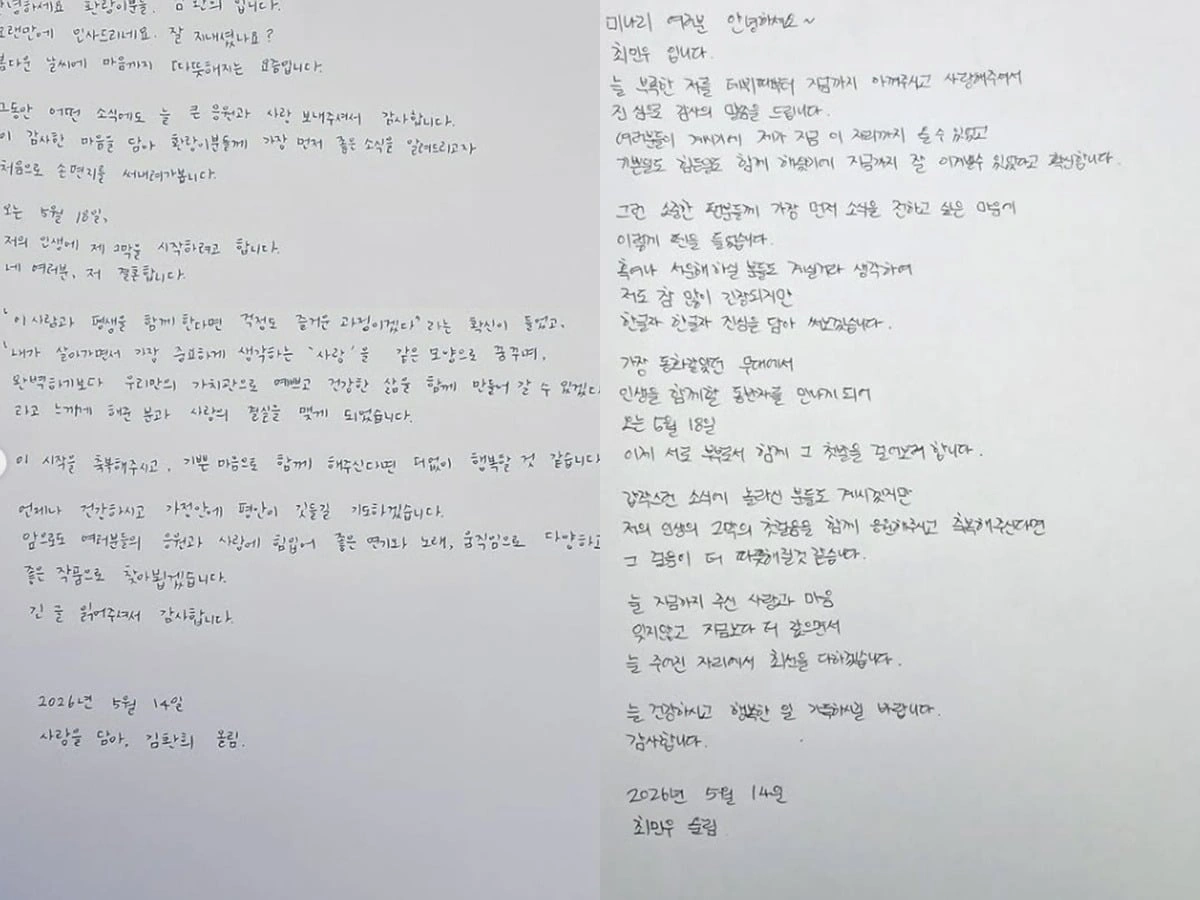 안녕하세요 환랑이분들. 김환희입니다.
오랜만에 인사드리네요. 잘 지내셨나요?
봄다운 날씨에 마음까지 따뜻해지는 요즘입니다.
그동안 어떤 소식에도 늘 큰 응원과 사랑 보내주셔서 감사합니다.
이 감사한 마음을 담아 환랑이분들께 가장 먼저 좋은 소식을 알려드리고자
처음으로 손편지를 써내려가봅니다.
오는 5월 18일,
저의 인생에 제 2막을 시작하려고 합니다.
네 여러분, 저 결혼합니다.
'이 사람과 평생을 함께 한다면 걱정도 즐거운 과정이겠다' 라는 확신이 들었고,
'내가 살아가면서 가장 중요하게 생각하는 '사랑'을 같은 모양으로 꿈꾸며,
완벽하기보다 우리만의 가치관으로 예쁘고 건강한 삶을 함께 만들어 갈 수 있겠다
라고 느끼게 해준 분과 사랑의 결실을 맺게 되었습니다.
이 시작을 축복해주시고, 기쁜 마음으로 함께 해주신다면 더없이 행복할 것 같습니다
언제나 건강하시고 가정안에 평안이 깃들길 기도하겠습니다.
앞으로도 여러분들의 응원과 사랑에 힘입어 좋은 연기와 노래, 움직임으로 다양하고
좋은 작품으로 찾아뵙겠습니다.
긴 글 읽어주셔서 감사합니다.
2026년 5월 14일
사랑을 담아, 김환희 올림.
미나리 여러분 안녕하세요~
최민우 입니다.
늘 부족한 저를 데뷔때부터 지금까지 아껴주시고 사랑해주셔서
진심으로 감사의 말씀을 드립니다.
여러분들이 계시기에 제가 지금 이 자리까지 올 수 있었고
기쁜일도 힘든일도 함께 해줬기에 지금까지 잘 이겨낼수 있었다고 확신합니다.
그런 소중한 팬분들께 가장 먼저 소식을 전하고 싶은 마음에
이렇게 펜을 들었습니다.
혹여나 서운해하실 분들도 계실거라 생각하여
저도 참 많이 긴장되지만
한글자 한글자 진심을 담아 써보겠습니다.
가장 동화같았던 무대에서
인생을 함께할 동반자를 만나게 되어
오는 5월 18일
이제 서로 부부로서 함께 그 첫발을 걸어보려 합니다.
갑작스런 소식에 놀라신 분들도 계시겠지만
저의 인생의 2막의 첫걸음을 함께 응원해주시고 축복해주신다면
그 걸음이 더 따뜻해질것 같습니다.
늘 지금까지 주신 사랑과 마음
잊지않고 지금보다 더 갚으면서
늘 주어진 자리에서 최선을 다하겠습니다.
늘 건강하시고 행복한 일 가득하시길 바랍니다.
감사합니다.
2026년 5월 14일
최민우 올림